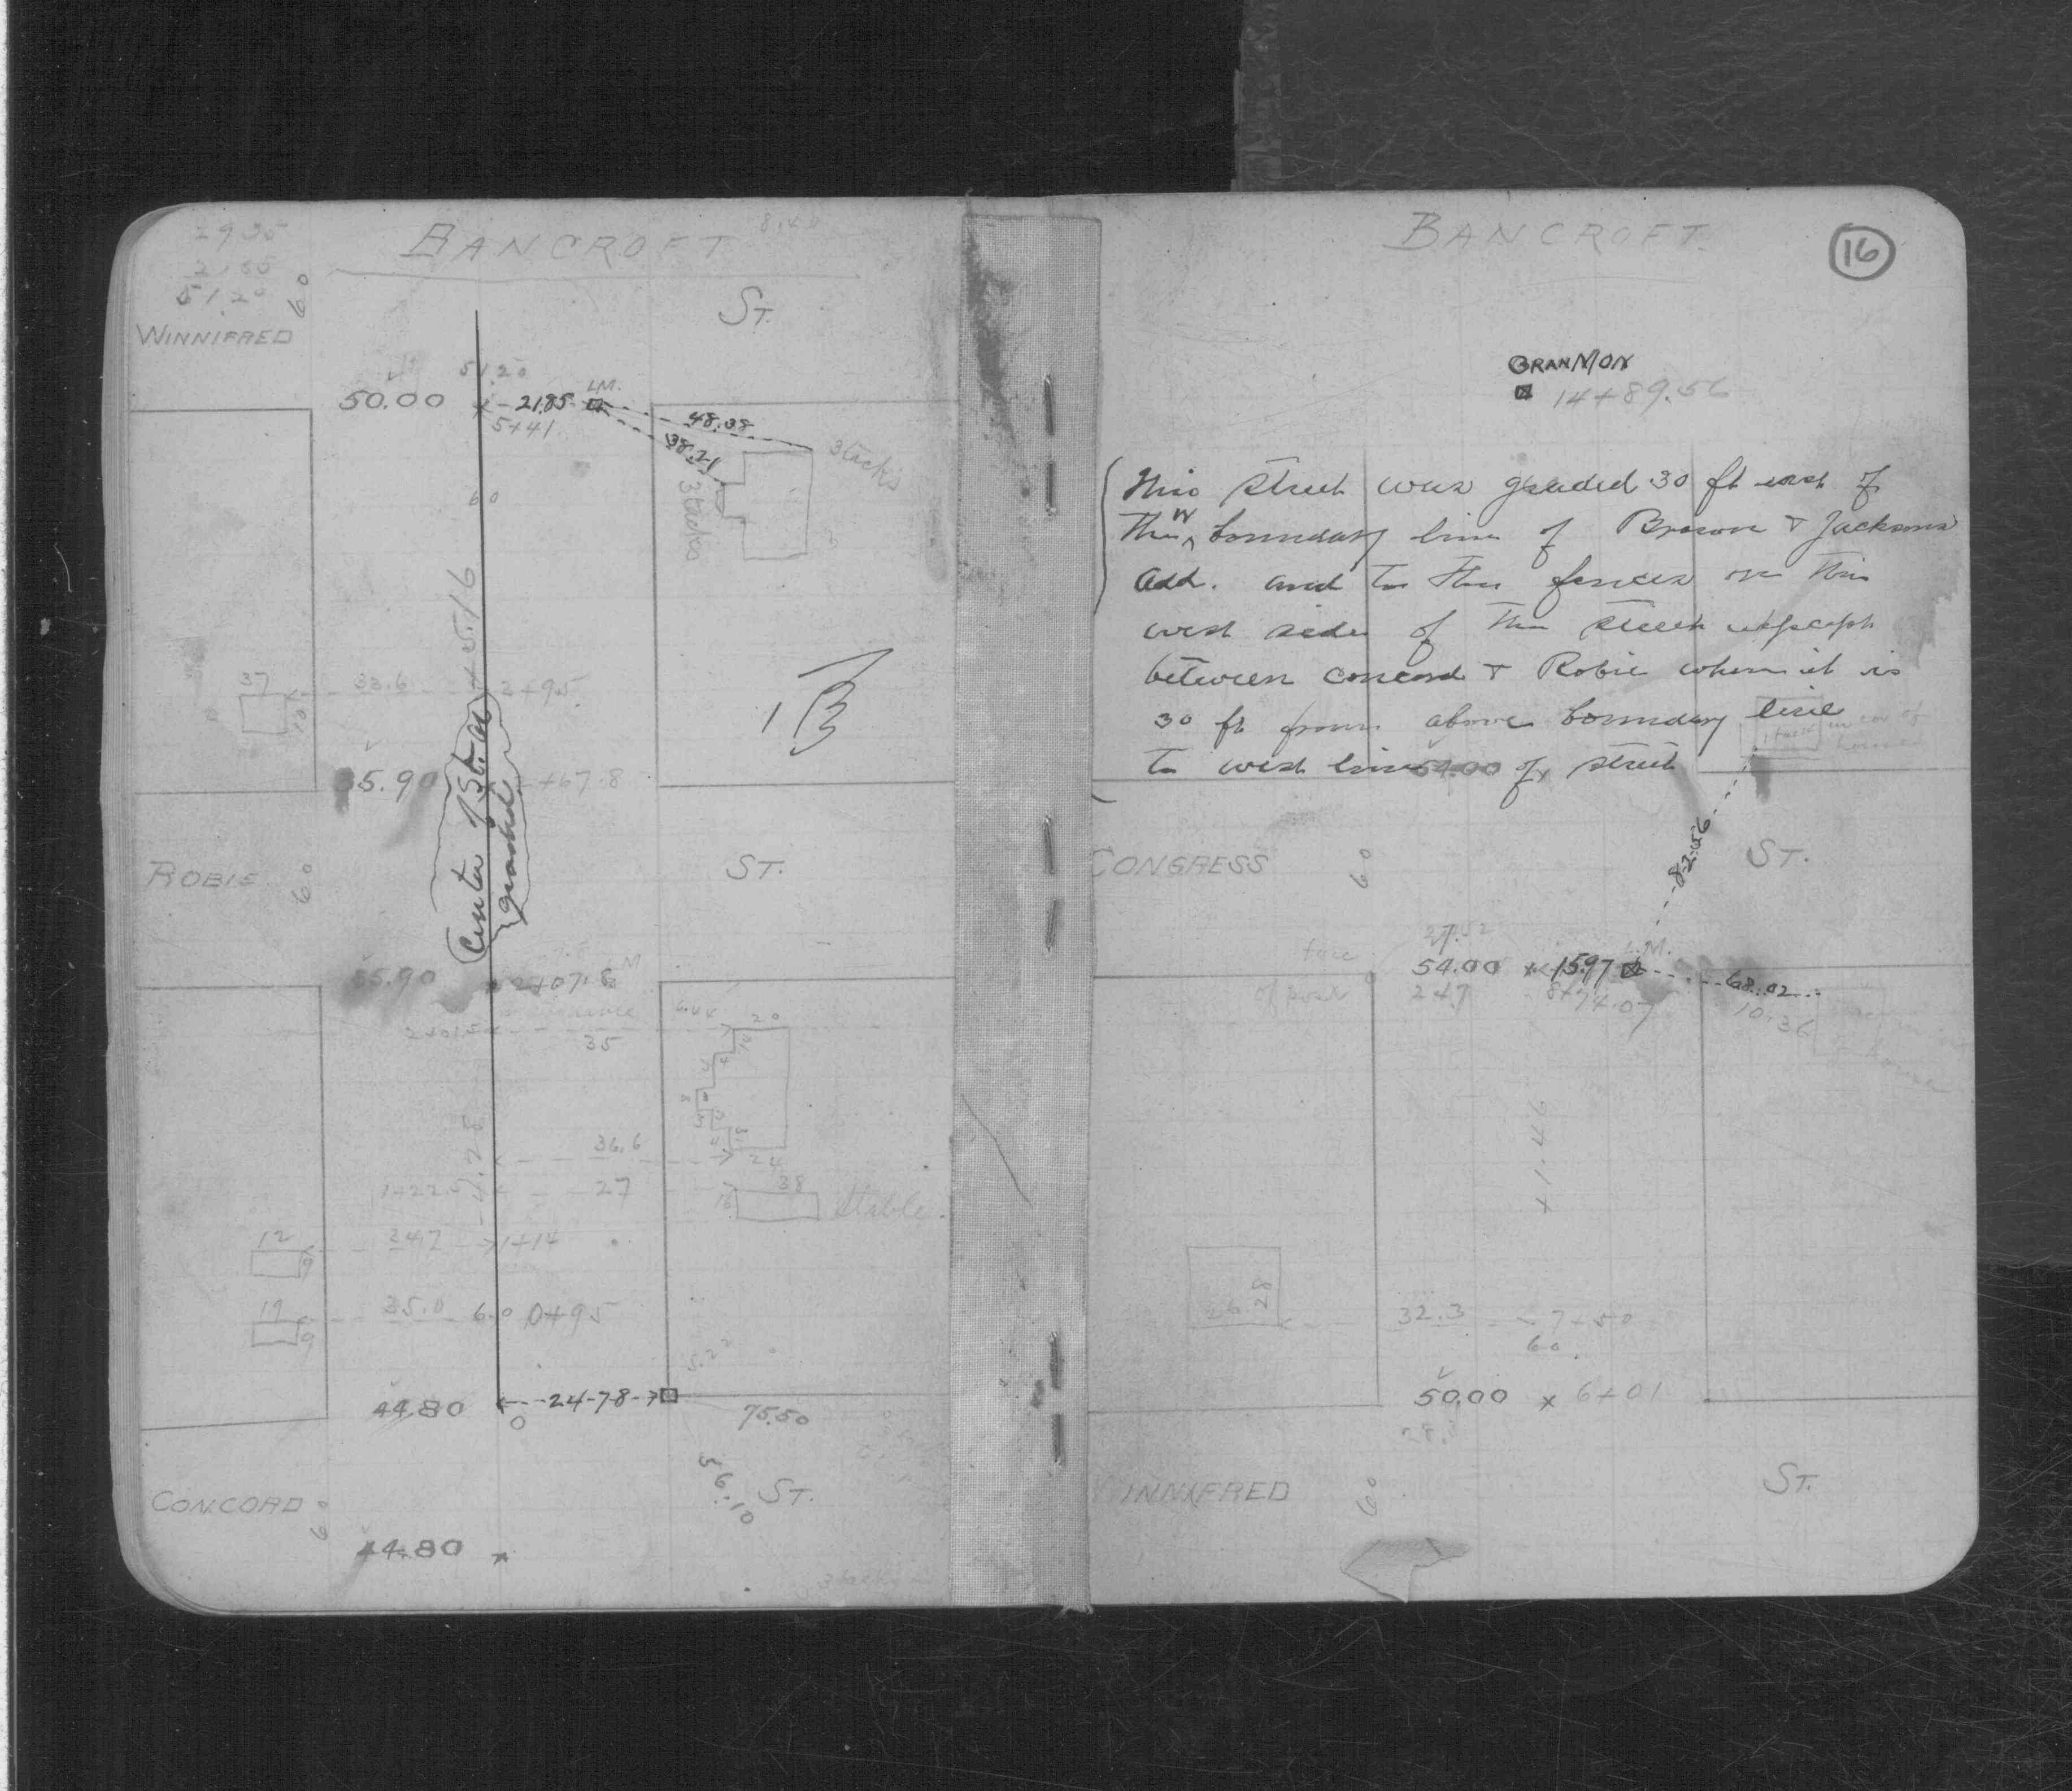 BANCROFT
8.40
29.35
21.85
51.20
60
WINNIFRED
ST.
51.20
50.00
21.85
L.M.
5+41
48.38
38.21
3 tacks
3 tacks
60
+5.16
37
33.6
2+95
10
1 B
5.90
+67.8
Center of St. as
graded
ROBIE
60
ST.
55.90
2+07.8
L M
35
6.44
20
36.6
24
-4.28
1+22
27
38
16
Stable
12
34.7
1+14
19
35.0
6.0
0+95
5.22
44.80
0
24.78
75.50
56.10
CONCORD
60
ST.
44.80
BANCROFT.
16
GRAN MON
14+89.56
This street was graded 30 ft east of
the W boundary line of Brown & Jacksons
Add. and to the fences on the
west side of the street except
between Concord & Robie where it is
30 ft from above boundary line
to west line of street
54.00
1 tack
in cor of
house
CONGRESS
60
ST.
82.56
27.52
L.M.
54.00
15.97
68.02
of walk
247
8+74.07
10.36
house
+1.46
26
28
32.3
7+50
60
50.00
6+01
28.
WINNIFRED
60
ST.